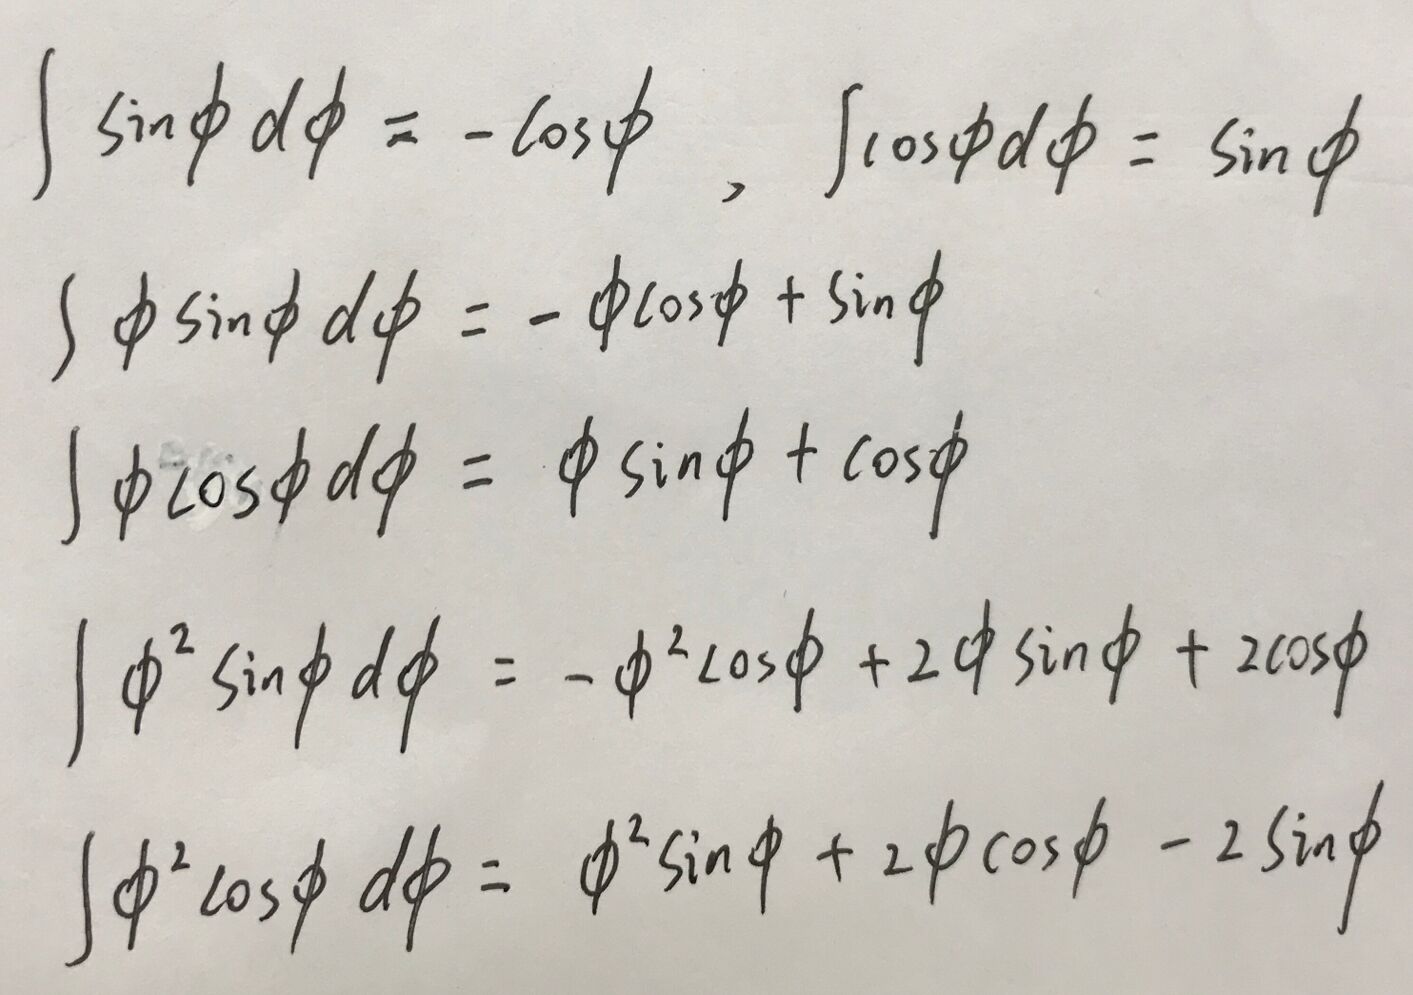 ∫ sinϕ dϕ = -cosϕ , ∫cosϕdϕ = sinϕ
∫ ϕ sinϕ dϕ = - ϕcosϕ + sinϕ
∫ ϕcosϕdϕ = ϕ sinϕ + cosϕ
∫ ϕ² sinϕ dϕ = -ϕ²cosϕ + 2ϕ sinϕ + 2cosϕ
∫ϕ² cosϕ dϕ = ϕ² sinϕ + 2ϕ cosϕ - 2 sinϕ